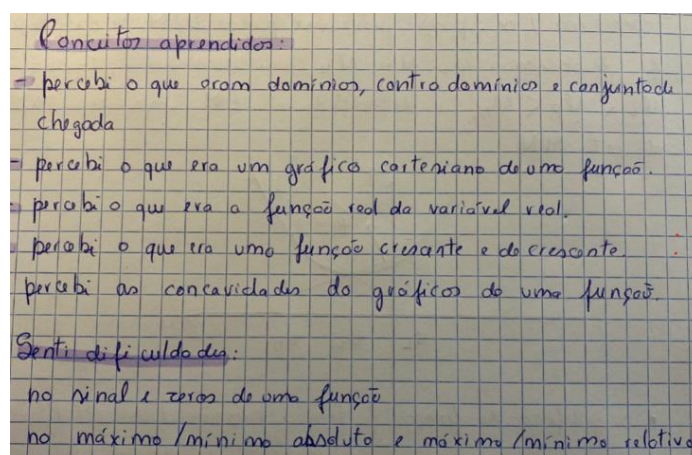 Conceitos aprendidos:
- percebi o que eram domínios, contra domínios e conjunto de
chegada
- percebi o que era um gráfico cartesiano de uma função.
- percebi o que era a função real da variável real.
- percebi o que era uma função crescente e decrescente.
percebi as concavidades do gráficos de uma função.
Senti dificuldades:
no sinal e zeros de uma função
no máximo/mínimo absoluto e máximo/mínimo relativo